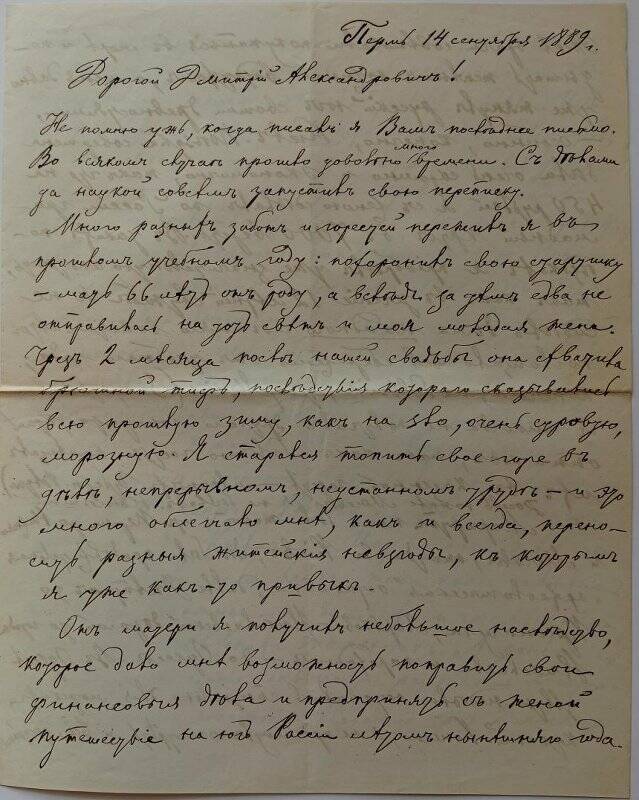 Пермь 14 сентября 1889 г.
Дорогой Дмитрій Александровичъ!
Не помню ужъ, когда писалъ я Вамъ послѣднее письмо.
Во всякомъ случаѣ прошло довольно много времени. Съ дѣлами
да наукой совсѣмъ запустилъ свою переписку.
Много разныхъ заботъ и горестей пережилъ я въ
прошломъ учебномъ году: похоронилъ свою старушку
– мать 66 лѣтъ отъ роду, а вслѣдъ за тѣмъ едва не
отправилась на тотъ свѣтъ и моя молодая жена.
Чрезъ 2 мѣсяца послѣ нашей свадьбы она схватила
брюшной тифъ, послѣдствія котораго сказывались
всю прошлую зиму, какъ на зло, очень суровую,
морозную. Я старался топить свое горе въ
дѣлѣ, непрерывномъ, неустанномъ трудѣ – и это
много облегчало мнѣ, какъ и всегда, перено-
сить разныя житейскія невзгоды, къ которымъ
я уже какъ-то привыкъ.
Отъ матери я получилъ небольшое наслѣдство,
которое дало мнѣ возможность поправить свои
финансовыя дѣла и предпринять съ женой
путешествіе на югъ Россіи лѣтомъ нынѣшняго года.